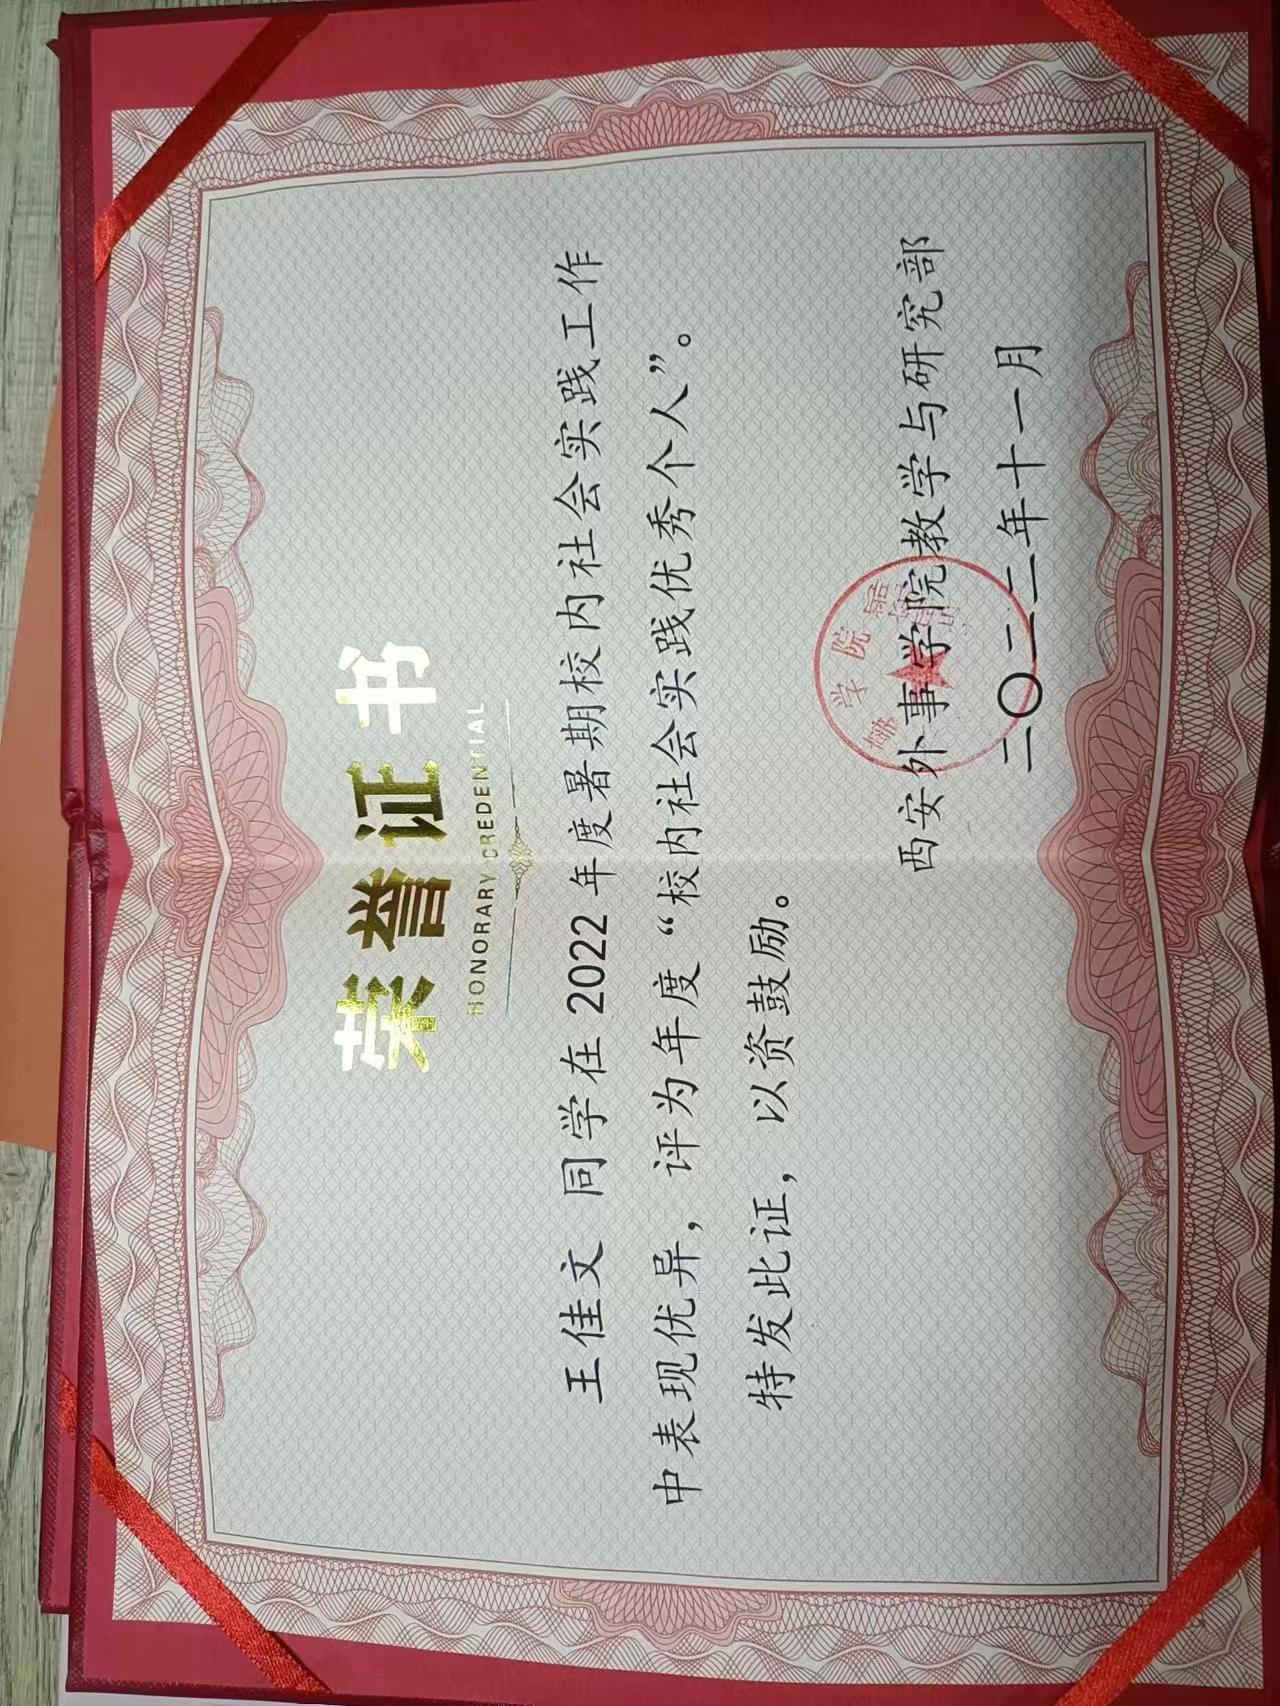 荣誉证书
HONORARY CREDENTIAL
王佳文 同学在 2022 年度暑期校内社会实践工作
中表现优异，评为年度“校内社会实践优秀个人”。
特发此证，以资鼓励。
西安外事学院教学与研究部
二〇二二年十一月